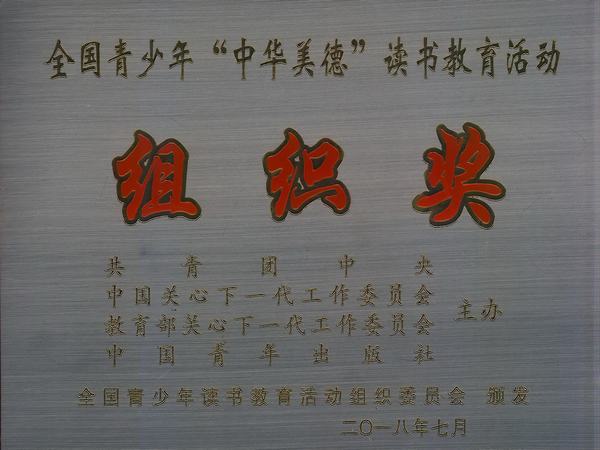 全国青少年“中华美德”读书教育活动
组织奖
共青团中央
中国关心下一代工作委员会
教育部关心下一代工作委员会
中国青年出版社
主办
全国青少年读书教育活动组织委员会 颁发
二〇一八年七月